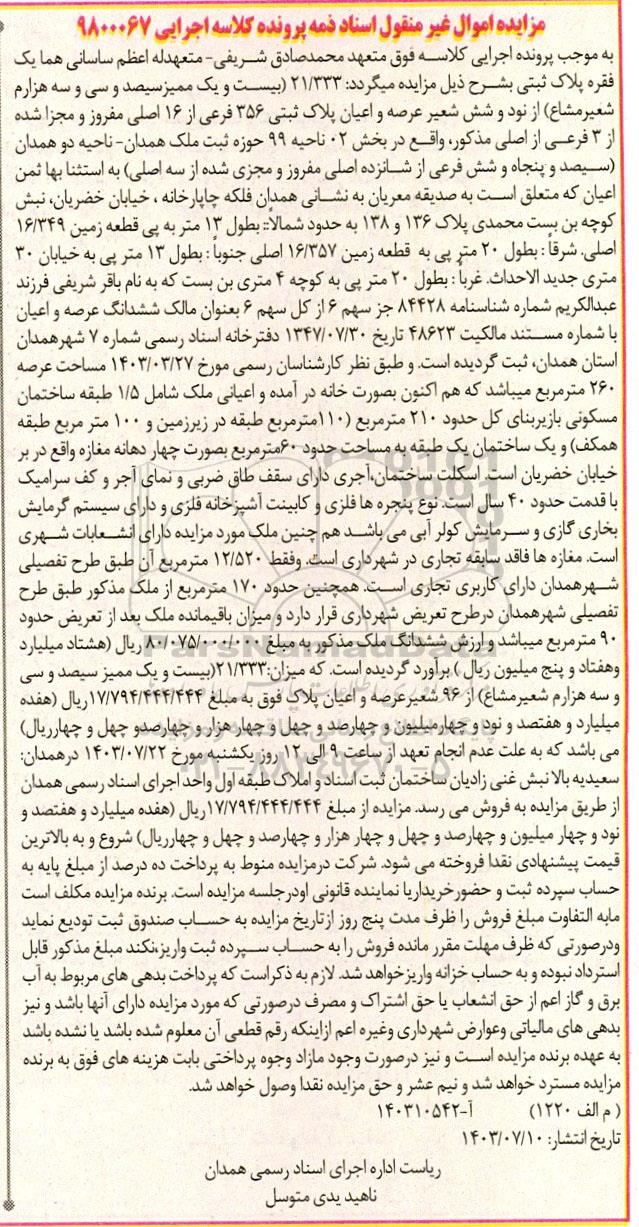 مزایده اموال غیر منقول اسناد ذمه پرونده کلاسه اجرایی ۹۸۰۰۰۶۷
به موجب پرونده اجرایی کلاسه فوق متعهد محمدصادق شریفی- متعهدله اعظم ساسانی هما یک
فقره پلاک ثبتی بشرح ذیل مزایده میگردد: ۲۱/۳۳۳ (بیست و یک ممیزسیصد و سی و سه هزارم
شعیرمشاع) از نود و شش شعیر عرصه و اعیان پلاک ثبتی ۳۵۶ فرعی از ۱۶ اصلی مفروز و مجزا شده
از ۳ فرعی از اصلی مذکور، واقع در بخش ۰۲ ناحیه ۹۹ حوزه ثبت ملک همدان- ناحیه دو همدان
(سیصد و پنجاه و شش فرعی از شانزده اصلی مفروز و مجزی شده از سه اصلی) به استثنا بها ثمن
اعیان که متعلق است به صدیقه معریان به نشانی همدان فلکه چاپارخانه ، خیابان خضریان، نبش
کوچه بن بست محمدی پلاک ۱۳۶ و ۱۳۸ به حدود شمالاً:: بطول ۱۳ متر به پی قطعه زمین ۱۶/۳۴۹
اصلی. شرقاً : بطول ۲۰ متر پی به قطعه زمین ۱۶/۳۵۷ اصلی جنوباً : بطول ۱۳ متر پی به خیابان ۳۰
متری جدید الاحداث. غرباً : بطول ۲۰ متر پی به کوچه ۴ متری بن بست که به نام باقر شریفی فرزند
عبدالکریم شماره شناسنامه ۸۴۴۲۸ جز سهم ۶ از کل سهم ۶ بعنوان مالک ششدانگ عرصه و اعیان
با شماره مستند مالکیت ۴۸۶۲۳ تاریخ ۱۳۴۷/۰۷/۳۰ دفترخانه اسناد رسمی شماره ۷ شهرهمدان
استان همدان، ثبت گردیده است. و طبق نظر کارشناسان رسمی مورخ ۱۴۰۳/۰۳/۲۷ مساحت عرصه
۲۶۰ مترمربع میباشد که هم اکنون بصورت خانه در آمده و اعیانی ملک شامل ۱/۵ طبقه ساختمان
مسکونی بازیربنای کل حدود ۲۱۰ مترمربع (۱۱۰مترمربع طبقه در زیرزمین و ۱۰۰ متر مربع طبقه
همکف) و یک ساختمان یک طبقه به مساحت حدود ۶۰مترمربع بصورت چهار دهانه مغازه واقع در بر
خیابان خضریان است. اسکلت ساختمان،آجری دارای سقف طاق ضربی و نمای آجر و کف سرامیک
با قدمت حدود ۴۰ سال است. نوع پنجره ها فلزی و کابینت آشپزخانه فلزی و دارای سیستم گرمایش
بخاری گازی و سرمایش کولر آبی می باشد هم چنین ملک مورد مزایده دارای انشعابات شهری
است. مغازه ها فاقد سابقه تجاری در شهرداری است. وفقط ۱۲/۵۲۰ مترمربع آن طبق طرح تفصیلی
شهرهمدان دارای کاربری تجاری است. همچنین حدود ۱۷۰ مترمربع از ملک مذکور طبق طرح
تفصیلی شهرهمدان درطرح تعریض شهرداری قرار دارد و میزان باقیمانده ملک بعد از تعریض حدود
۹۰ مترمربع میباشد و ارزش ششدانگ ملک مذکور به مبلغ ۸۰/۰۷۵/۰۰۰/۰۰۰ ریال (هشتاد میلیارد
وهفتاد و پنج میلیون ریال ) برآورد گردیده است. که میزان:۲۱/۳۳۳(بیست و یک ممیز سیصد و سی
و سه هزارم شعیرمشاع) از ۹۶ شعیرعرصه و اعیان پلاک فوق به مبلغ ۱۷/۷۹۴/۴۴۴/۴۴۴ریال (هفده
میلیارد و هفتصد و نود و چهارمیلیون و چهارصد و چهل و چهار هزار و چهارصدو چهل و چهارریال)
می باشد که به علت عدم انجام تعهد از ساعت ۹ الی ۱۲ روز یکشنبه مورخ ۱۴۰۳/۰۷/۲۲ درهمدان:
سعیدیه بالا نبش غنی زادیان ساختمان ثبت اسناد و املاک طبقه اول واحد اجرای اسناد رسمی همدان
از طریق مزایده به فروش می رسد. مزایده از مبلغ ۱۷/۷۹۴/۴۴۴/۴۴۴ریال (هفده میلیارد و هفتصد و
نود و چهار میلیون و چهارصد و چهل و چهار هزار و چهارصد و چهل و چهارریال) شروع و به بالاترین
قیمت پیشنهادی نقدا فروخته می شود. شرکت درمزایده منوط به پرداخت ده درصد از مبلغ پایه به
حساب سپرده ثبت و حضورخریداریا نماینده قانونی اودرجلسه مزایده است. برنده مزایده مکلف است
مابه التفاوت مبلغ فروش را ظرف مدت پنج روز ازتاریخ مزایده به حساب صندوق ثبت تودیع نماید
ودرصورتی که ظرف مهلت مقرر مانده فروش را به حساب سپرده ثبت واریزنکند مبلغ مذکور قابل
استرداد نبوده و به حساب خزانه واریزخواهد شد. لازم به ذکراست که پرداخت بدهی های مربوط به آب
برق و گاز اعم از حق انشعاب یا حق اشتراک و مصرف درصورتی که مورد مزایده دارای آنها باشد و نیز
بدهی های مالیاتی وعوارض شهرداری وغیره اعم ازاینکه رقم قطعی آن معلوم شده باشد یا نشده باشد
به عهده برنده مزایده است و نیز درصورت وجود مازاد وجوه پرداختی بابت هزینه های فوق به برنده
مزایده مسترد خواهد شد و نیم عشر و حق مزایده نقدا وصول خواهد شد.
( م الف ۱۲۲۰) آ-۱۴۰۳۱۰۵۴۲
تاریخ انتشار: ۱۴۰۳/۰۷/۱۰
ریاست اداره اجرای اسناد رسمی همدان
ناهید یدی متوسل